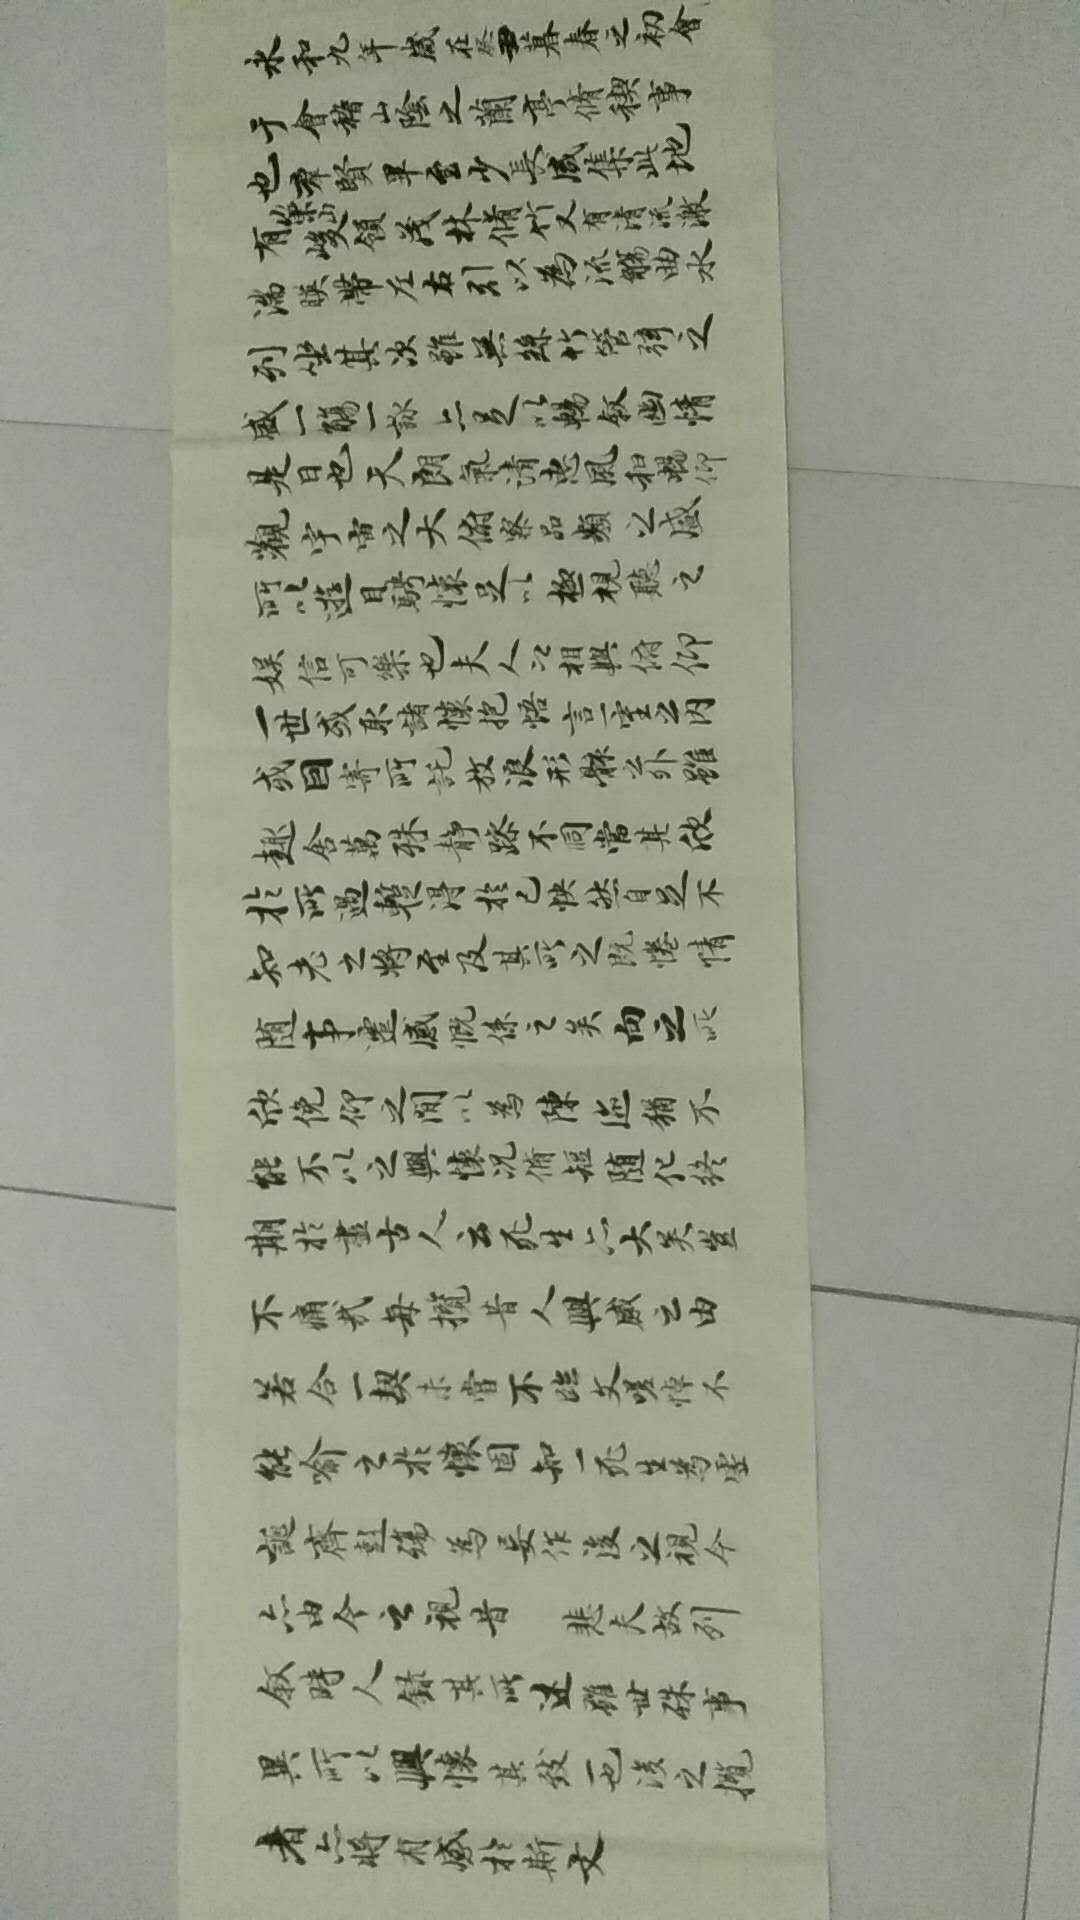 永和九年歲在癸丑暮春之初會
于會稽山陰之蘭亭脩禊事
也群賢畢至少長咸集此地
有崇山峻領茂林脩竹又有清流激
湍暎帶左右引以為流觴曲水
列坐其次雖無絲竹管弦之
盛一觴一詠亦足以暢敘幽情
是日也天朗氣清惠風和暢仰
觀宇宙之大俯察品類之盛
所以遊目騁懷足以極視聽之
娛信可樂也夫人之相與俯仰
一世或取諸懷抱悟言一室之內
或因寄所託放浪形骸之外雖
趣舍萬殊靜躁不同當其欣
於所遇暫得於己怏然自足不
知老之將至及其所之既惓情
隨事遷感慨係之矣向之所
欣俛仰之間以為陳迹猶不
能不以之興懷況脩短隨化終
期於盡古人云死生亦大矣豈
不痛哉每攬昔人興感之由
若合一契未嘗不臨文嗟悼不
能喻之於懷固知一死生為虛
誕齊彭殤為妄作後之視今
亦由今之視昔 悲夫故列
敘時人錄其所述雖世殊事
異所以興懷其致一也後之攬
者亦將有感於斯文